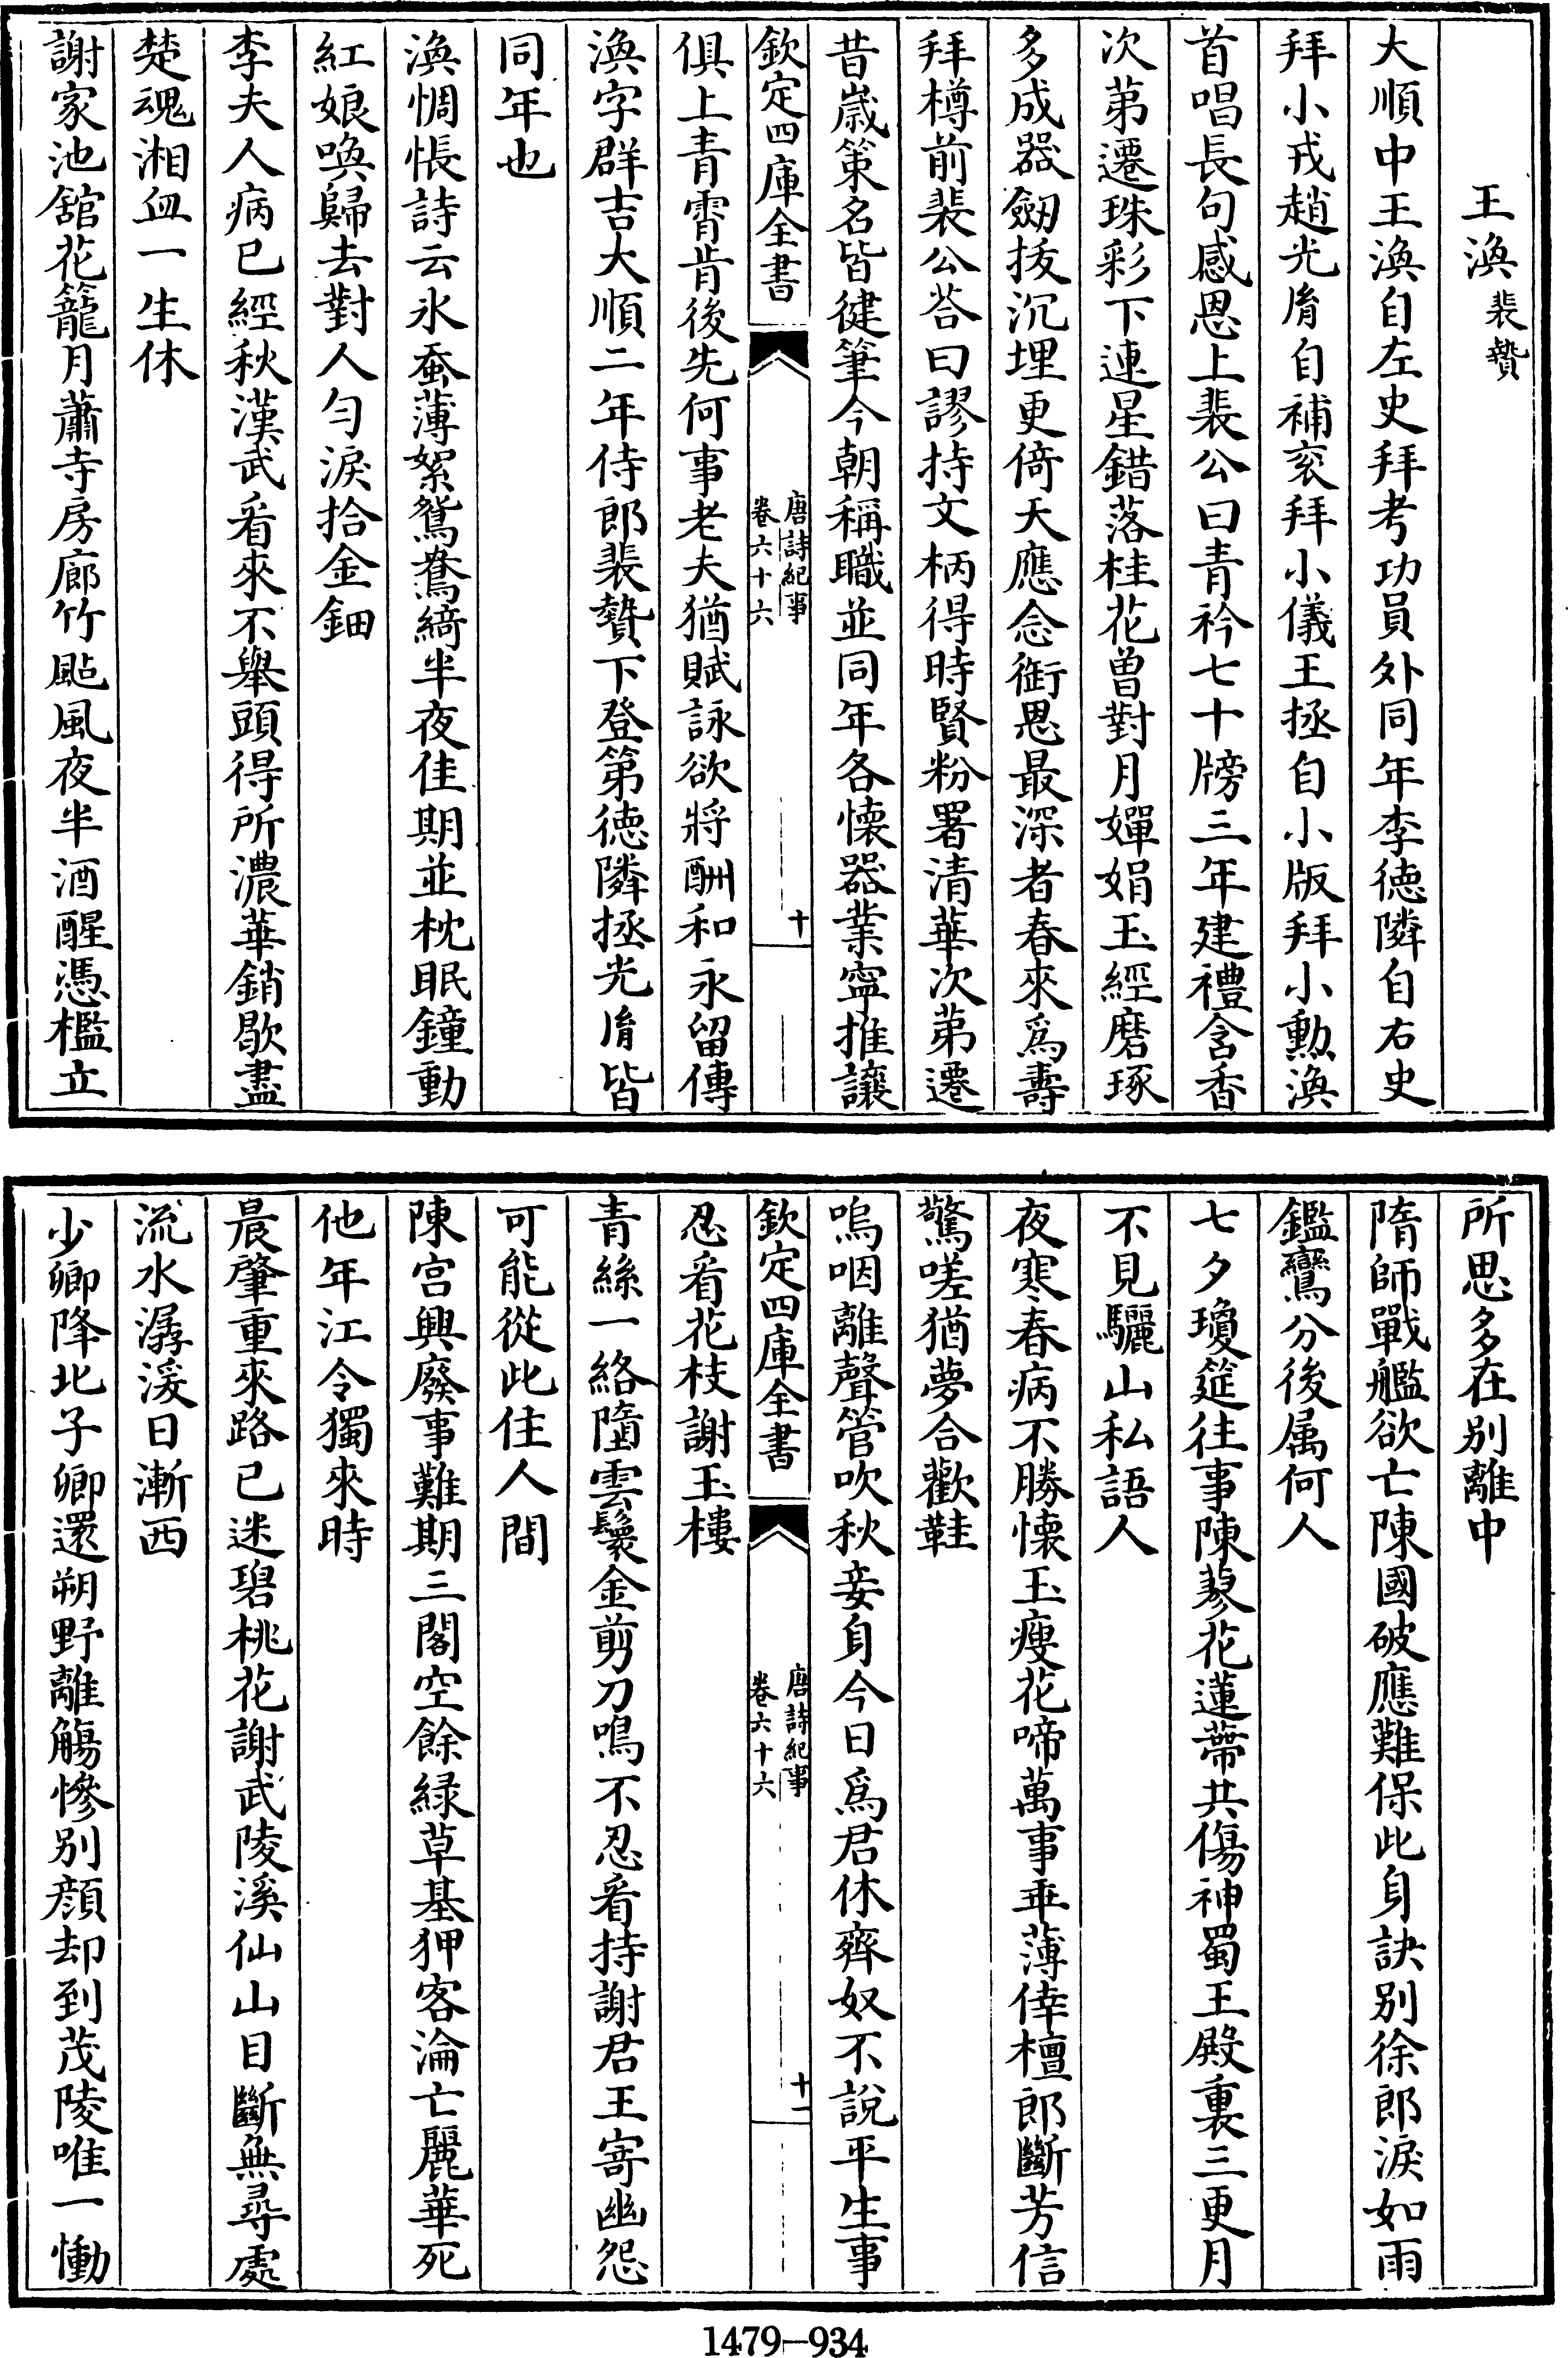 王渙裴贄
大順中王渙自左史拜考功員外同年李德隣自右史
拜小戎趙光胤自補衮拜小儀王拯自小版拜小勲渙
首唱長句感恩上裴公曰青衿七十牓三年建禮含香
次第遷珠彩下連星錯落桂花曽對月嬋娟玉經磨琢
多成器劔拔沉埋更倚天應念銜恩最深者春來爲壽
拜樽前裴公荅曰謬持文柄得時賢粉署清華次第遷
昔嵗策名皆健筆今朝稱職並同年各懐器業寧推讓
欽定四庫全書
唐詩紀事
卷六十六
十
俱上青霄肯後先何事老夫猶賦詠欲將酬和永留傳
渙字群吉大順二年侍郎裴贄下登第德隣拯光胤皆
同年也
渙惆悵詩云氷蚕薄絮鴛鴦綺半夜佳期並枕眠鐘動
紅娘喚歸去對人勻淚拾金鈿
李夫人病已經秋漢武看來不舉頭得所濃華銷歇盡
楚魂湘血一生休
謝家池舘花籠月蕭寺房廊竹颭風夜半酒醒憑檻立
所思多在别離中
隋師戰艦欲亡陳國破應難保此身訣别徐郎淚如雨
鑑鸞分後属何人
七夕瓊筵往事陳蓼花蓮蔕共傷神蜀王殿裏三更月
不見驪山私語人
夜寒春病不勝懐玉瘦花啼萬事乖薄倖檀郎斷芳信
驚嗟猶夢合歡鞋
嗚咽離聲管吹秋妾身今日爲君休齊奴不說平生事
欽定四庫全書
唐詩紀事
卷六十六
十一
忍看花枝謝玉樓
青絲一絡墮雲鬟金剪刀鳴不忍看持謝君王寄幽怨
可能從此住人間
陳宫興廢事難期三閣空餘緑草基狎客淪亡麗華死
他年江令獨來時
晨肇重來路已迷碧桃花謝武陵溪仙山目斷無尋處
流水潺湲日漸西
少卿降北子卿還朔野離觴慘别顔却到茂陵唯一慟
1479-934